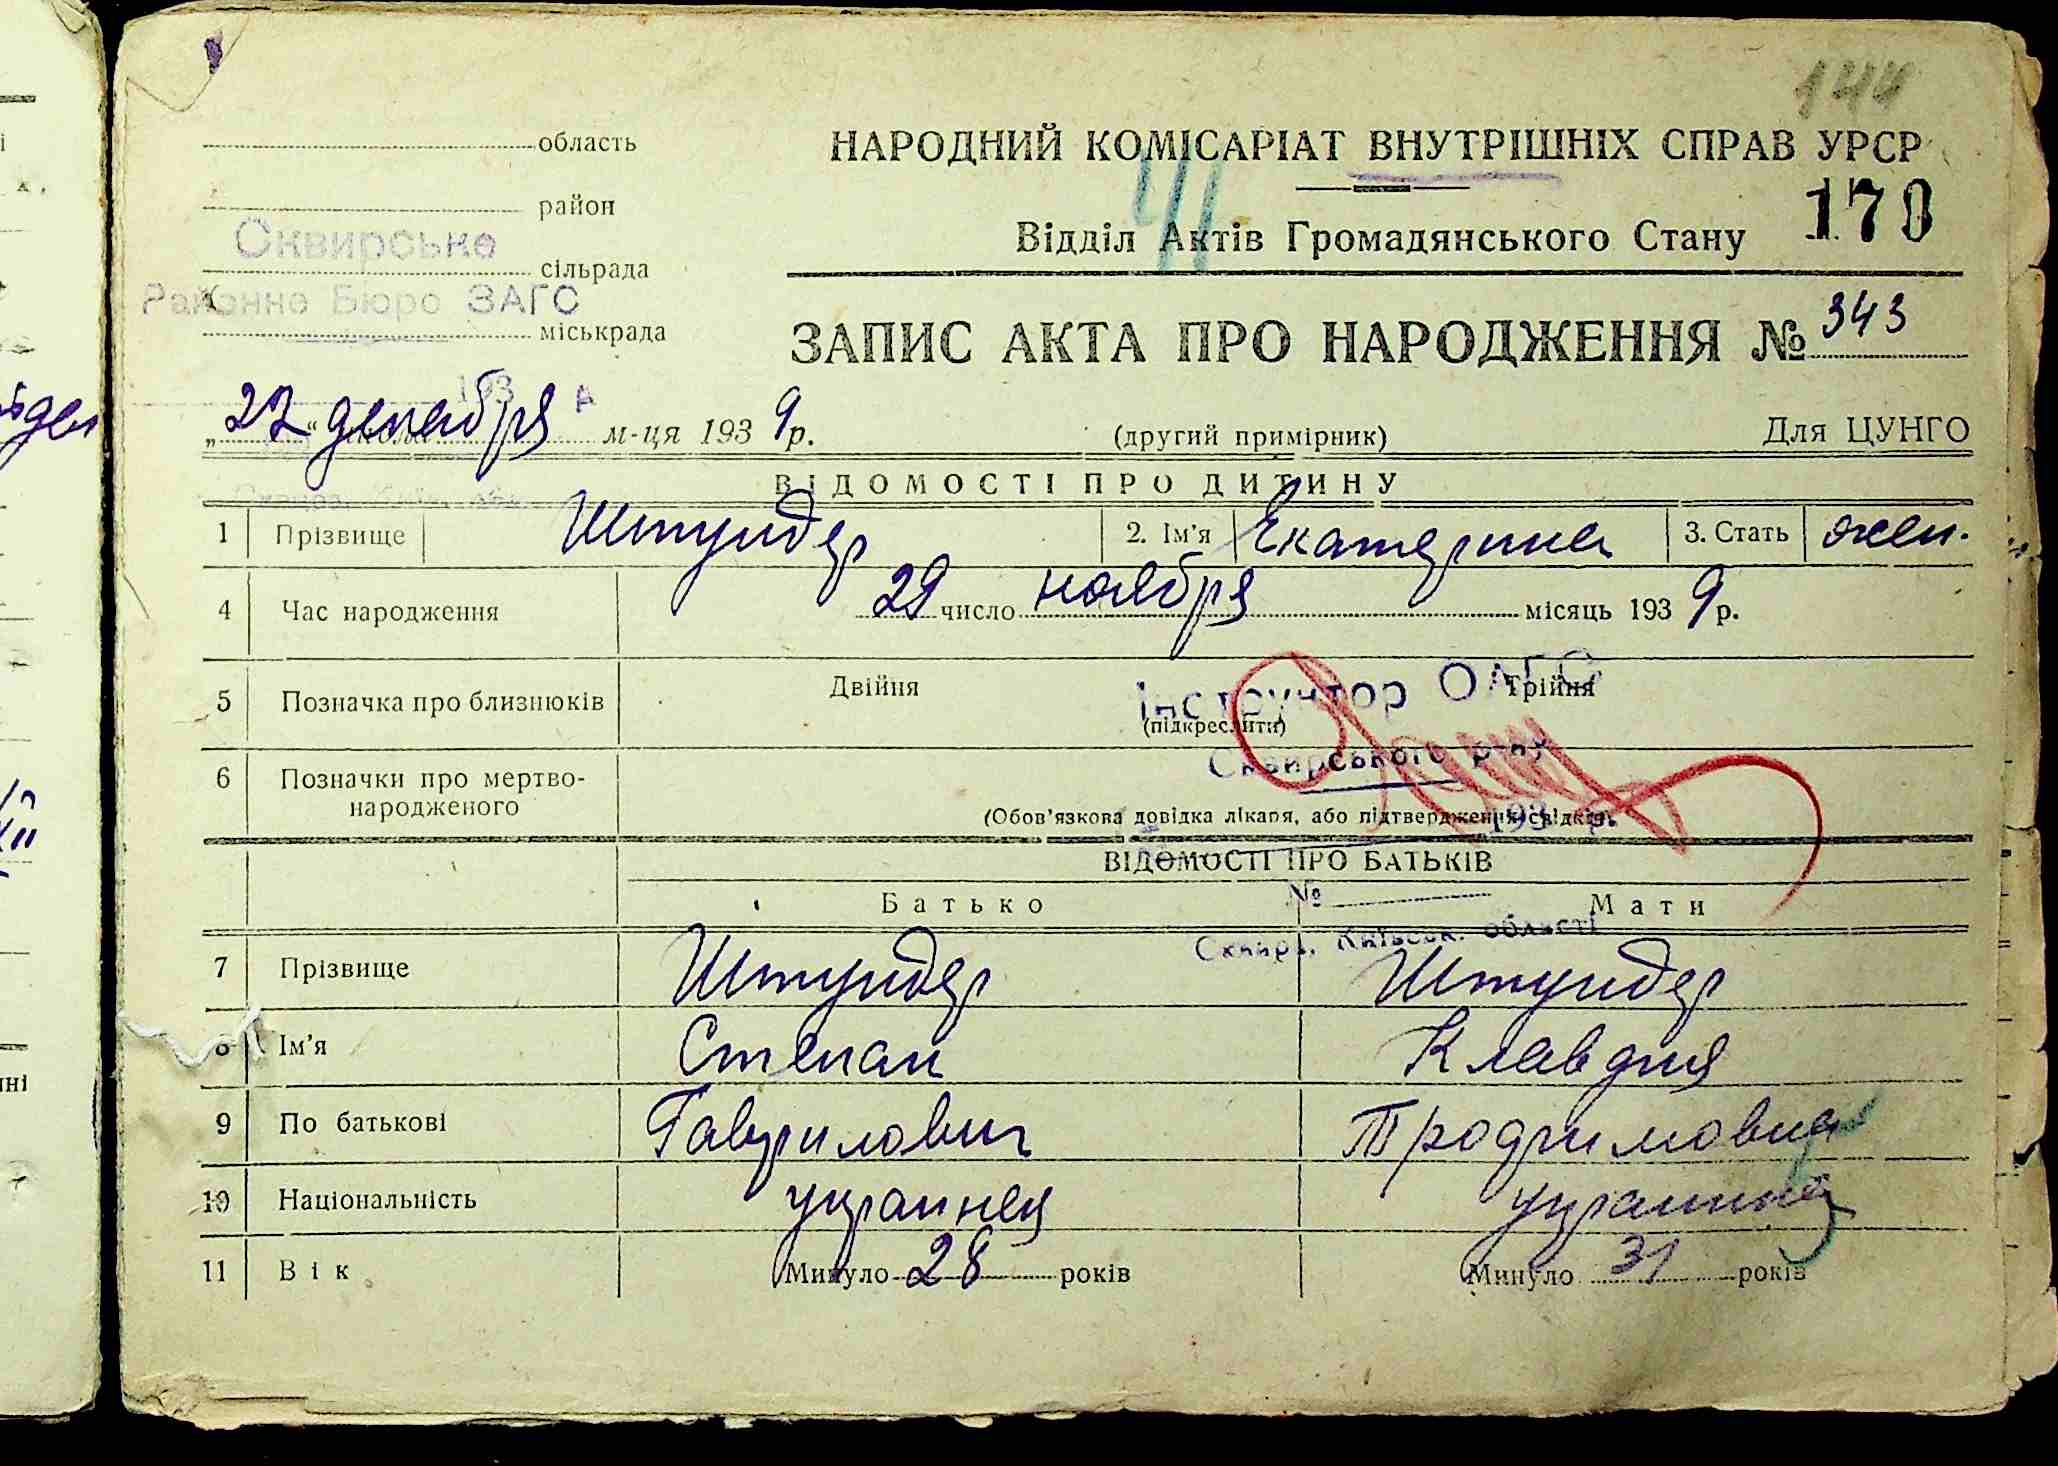 144
область
НАРОДНИЙ КОМІСАРІАТ ВНУТРІШНІХ СПРАВ УРСР
район
170
Відділ Актів Громадянського Стану
Сквирське
сільрада
Районне Бюро ЗАГС
міськрада
ЗАПИС АКТА ПРО НАРОДЖЕННЯ № 343
193
„22“ декабря м-ця 1939 р. (другий примірник) Для ЦУНГО
ВІДОМОСТІ ПРО ДИТИНУ
1 Прізвище Штундер 2. Ім'я Екатерина 3. Стать жен.
4 Час народження 29 число ноября місяць 1939 р.
5 Позначка про близнюків Двійня (підкреслити) Трійня
Інструктор ОАГС
Сквирського р-ну
6 Позначки про мертво-
народженого
(Обов'язкова довідка лікаря, або підтвердження свідків).
193 р.
ВІДОМОСТІ ПРО БАТЬКІВ
Батько Мати
№
Сквира, Київськ. області
7 Прізвище Штундер Штундер
8 Ім'я Степан Клавдия
9 По батькові Гаврилович Трофимовна
10 Національність украинец украинка
11 Вік Минуло 28 років Минуло 31 років